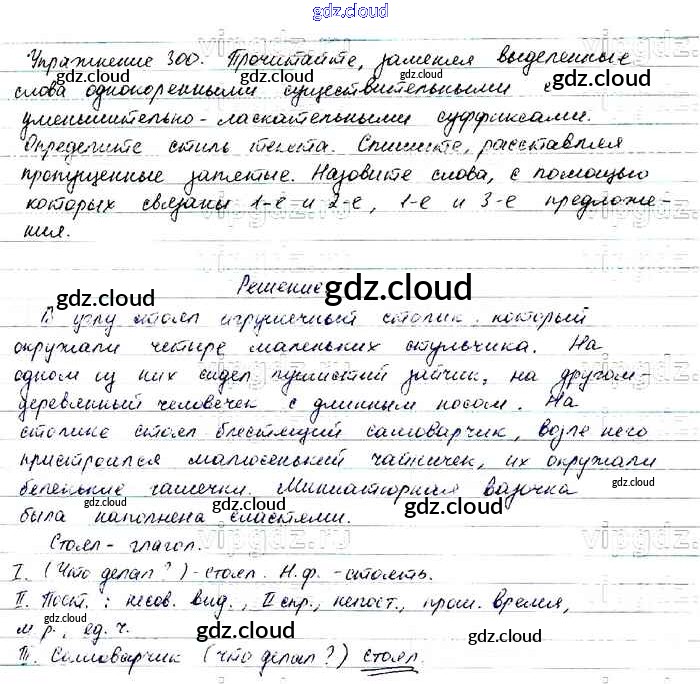 gdz.cloud
Упражнение 300. Прочитайте, заменяя выделенные
слова однокоренными существительными с
уменьшительно-ласкательными суффиксами.
Определите стиль текста. Спишите, расставляя
пропущенные запятые. Назовите слова, с помощью
которых связаны 1-е и 2-е, 1-е и 3-е предложе-
ния.
Решение
В углу стоял игрушечный столик, который
окружали четыре маленьких стульчика. На
одном из них сидел пушистый зайчик, на другом-
деревянный человечек с длинным носом. На
столике стоял блестящий самоварчик, возле него
пристроился малюсенький чайничек, их окружали
беленькие чашечки. Миниатюрная вазочка
была наполнена сластями.
Стоял - глагол.
I. (Что делал?) - стоял. Н.ф. - стоять.
II. Пост.: несов. вид., II спр., непост., прош. время,
м.р., ед. ч.
III. Самоварчик (что делал?) стоял.